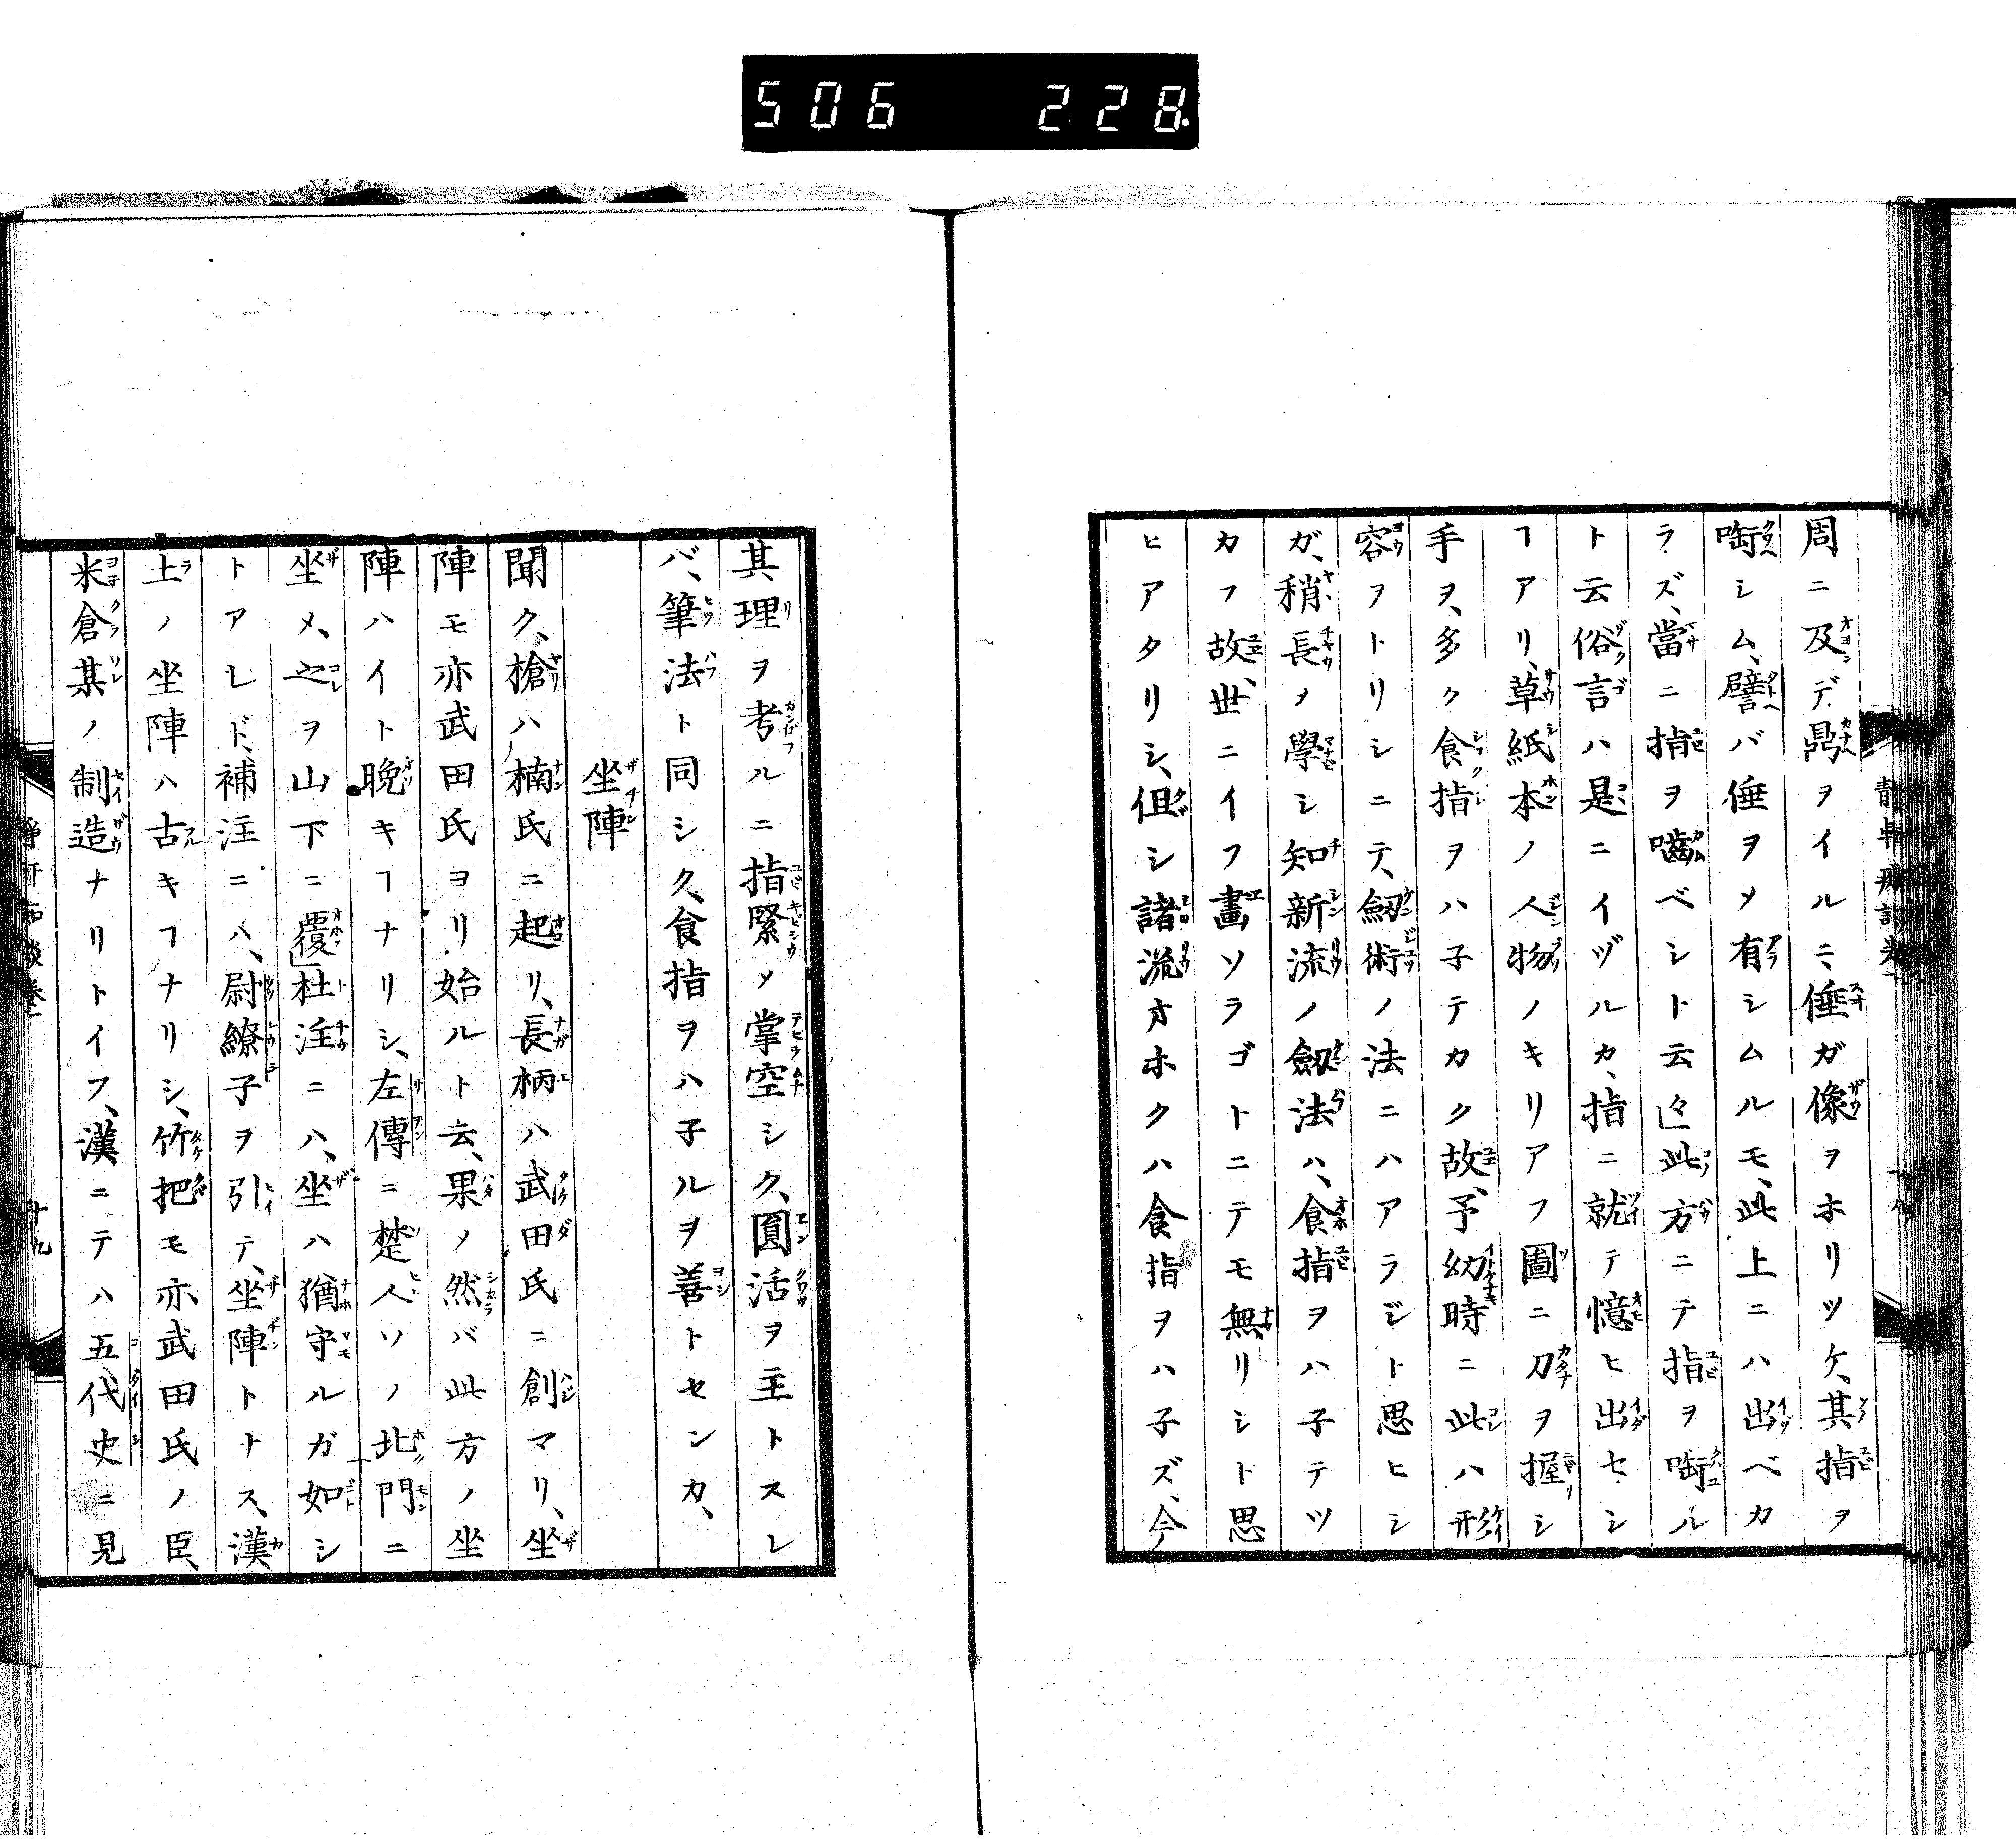 506 228
周ニ及デ鼎ヲイルニ、倕ガ像ヲホリツケ、其指ヲ
啮シム、譬バ倕ヲメ有シムルモ、此上ニハ出ベカ
ラズ、當ニ指ヲ嚙ベシト云々」此方ニテ指ヲ啣ル
ト云俗言ハ是ニイヅルカ、指ニ就テ憶ヒ出セシ
ヿアリ、草紙本ノ人物ノキリアフ圖ニ刀ヲ握シ
手ヲ、多ク食指ヲハ子テカク故、予幼時ニ此ハ形
容ヲトリシニテ、劒術ノ法ニハアラジト思ヒシ
ガ、稍長メ學シ知新流ノ劒法ハ、食指ヲハ子テツ
カフ故、世ニイフ畫ソラゴトニテモ無リシト思
ヒアタリシ、但シ諸流オホクハ食指ヲハ子ズ、今
其理ヲ考ルニ指緊メ掌空シク、圓活ヲ主トスレ
バ、筆法ト同シク、食指ヲハ子ルヲ善トセンカ、
坐陣
聞ク、槍ハ楠氏ニ起リ、長柄ハ武田氏ニ創マリ、坐
陣モ亦武田氏ヨリ始ルト云、果ノ然バ此方ノ坐
陣ハイト晩キヿナリシ、左傳ニ楚人ソノ北門ニ
坐メ、之ヲ山下ニ覆」杜注ニハ、坐ハ猶守ルガ如シ
トアレド、補注ニハ、尉繚子ヲ引テ、坐陣トナス、漢
土ノ坐陣ハ古キヿナリシ、竹把モ亦武田氏ノ臣、
米倉某ノ制造ナリトイフ、漢ニテハ五代史ニ見
十九